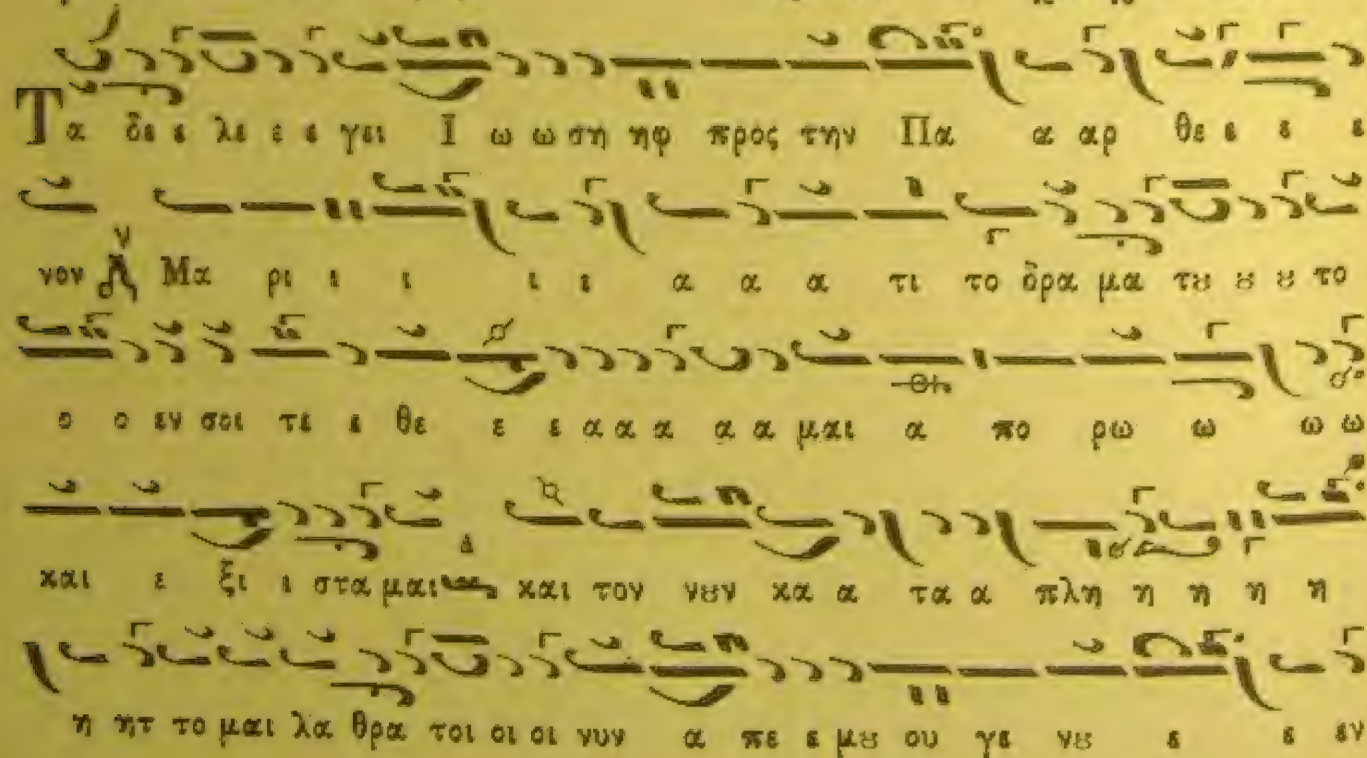 Τα δε ε λε ε ε γει Ι ω ω ση ηφ προς την Πα α αρ θε ε ε ε
νον Μα ρι ι ι ι ι α α α τι το ὅρα μα τȣ ȣ ȣ το
ο ο εν σοι τε ε θε ε ε α α α α α μαι α πο ρω ω ω ω
και ε ξι ι στα μαι και τον νȣν κα α τα α πλη η η η η
η ητ το μαι λα θρα τοι οι οι νυν α πε ε μȣ ου γε νȣ ε ε εν